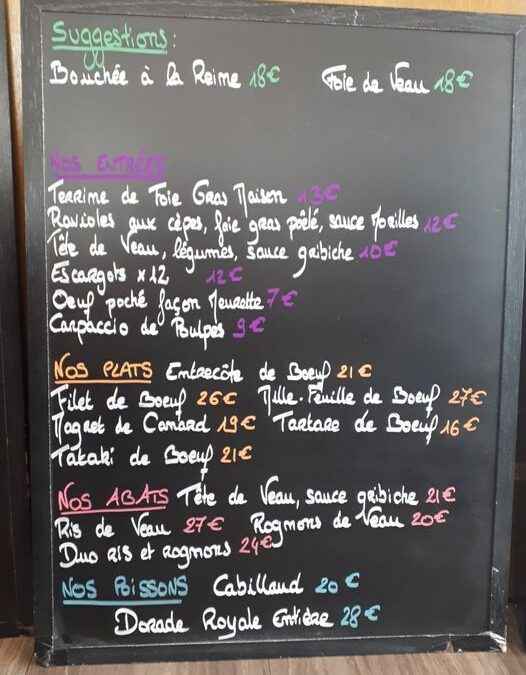 Suggestions:
Bouchée à la Reine 18€ Foie de Veau 18€
Nos Entrées
Terrine de Foie Gras Maison 13€
Ravioles aux cèpes, foie gras poêlé, sauce Morilles 12€
Tête de Veau, légumes, sauce gribiche 10€
Escargots x12 12€
Oeuf poché façon Meurette 7€
Carpaccio de Poulpes 9€
Nos Plats Entrecôte de Boeuf 21€
Filet de Boeuf 26€ Mille-Feuille de Boeuf 27€
Magret de Canard 19€ Tartare de Boeuf 16€
Tataki de Boeuf 21€
Nos Abats Tête de Veau, sauce gribiche 21€
Ris de Veau 27€ Rognons de Veau 20€
Duo Ris et rognons 24€
Nos Poissons Cabillaud 20€
Dorade Royale Entière 28€